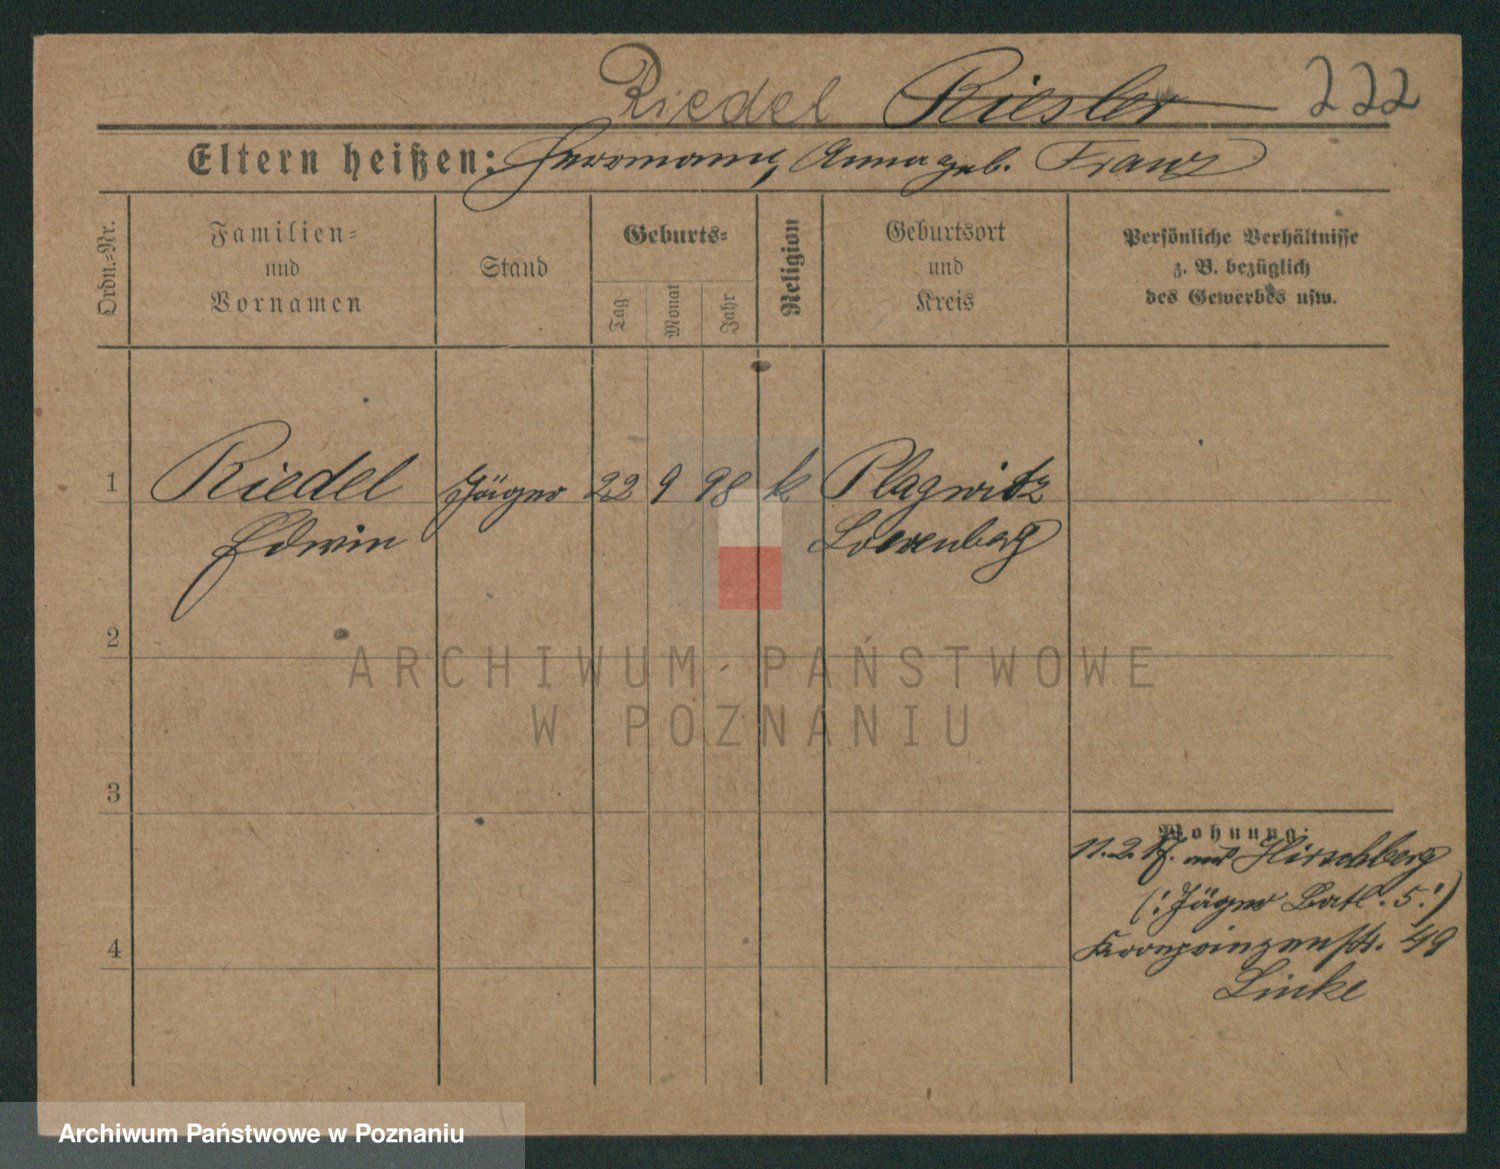 Riedel Riesler 222
Eltern heißen: Herrmann, Anna geb. Franz
Ordn.-Nr.
Familien-
und
Vornamen
Stand
Geburts-
Tag
Monat
Jahr
Religion
Geburtsort
und
Kreis
Persönliche Verhältnisse
z. B. bezüglich
des Gewerbes usw.
1 Riedel Jäger 22 9 98 k Plagwitz
Edwin Loewenberg
2
ARCHIWUM PAŃSTWOWE
W POZNANIU
3
Wohnung:
11. 2. 17. aus Hirschberg
(: Jäger Batl. 5 :)
4 Kronprinzenstr. 49
Linke
Archiwum Państwowe w Poznaniu